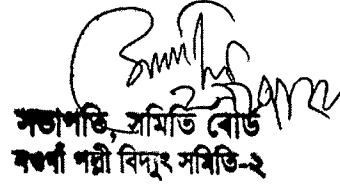 সভাপতি, সমিতি বোর্ড
নওগাঁ পল্লী বিদ্যুৎ সমিতি-২